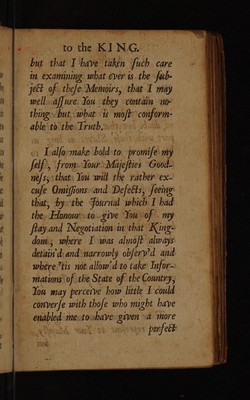 to the KING.
but that I have taken ſuch care
in examining what ever is the ſub-
ject of theſe Memoirs, that I may
well aſſure You they contain no-
thing but what is moſt conform-
able to the Truth.
I alſo make bold to promiſe my
ſelf, from Your Majeſties Good-
neſs, that You will the rather ex-
cuſe Omiſſions and Defects, ſeeing
that, by the Journal which I had
the Honour to give You of my
ſtay and Negotiation in that King-
dom, where I was almoſt always
detain'd and narrowly obſerv'd and
where 'tis not allow'd to take Infor-
mations of the State of the Country,
You may perceive how little I could
converſe with thoſe who might have
enabled me to have given a more
perfect